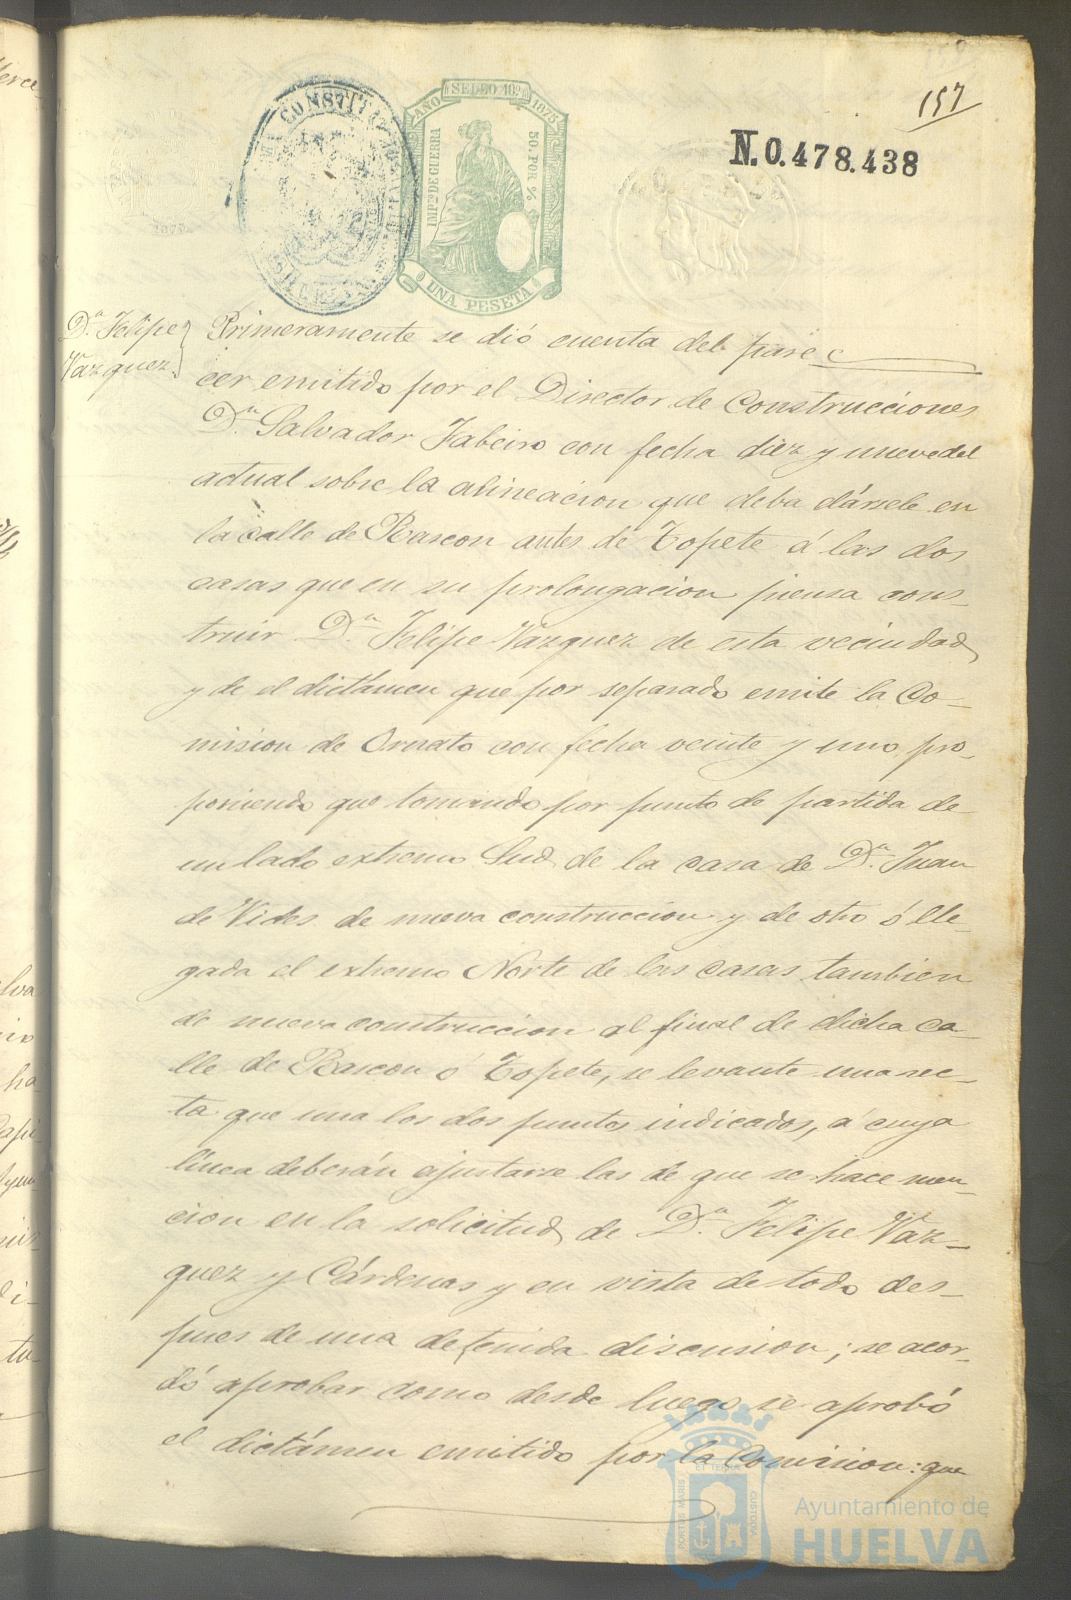 157
N.0.478.438
AÑO SELLO 10º 1875
IMPTO DE GUERRA
50. POR %
UNA PESETA
CONSTIT
Dn. Felipe
Vazquez
Primeramente se dió cuenta del pare
cer emitido por el Director de Construcciones
Dn. Salvador Fabeiro con fecha diez y nueve del
actual sobre la alineacion que deba dársele en
la calle de Rascon antes de Topete á las dos
casas que en su prolongacion piensa cons-
truir Dn. Felipe Vazquez de esta vecindad
y de el dictámen que por separado emite la Co-
mision de Ornato con fecha veinte y uno pro-
poniendo que tomando por punto de partida de
un lado extremo Sud de la casa de Dn. Juan
de Vides de nueva construccion y de otro ó lle-
gada el extremo Norte de las casas tambien
de nueva construccion al final de dicha ca-
lle de Rascon ó Topete, se levante una rec-
ta que una los dos puntos indicados, á cuya
línea deberán ajustarse las de que se hace men-
cion en la solicitud de Dn. Felipe Vaz-
quez y Cárdenas y en vista de todo des-
pues de una detenida discusion; se acor-
dó aprobar como desde luego se aprobó
el dictámen emitido por la Comision: que
PORTUS MARIS
ET TERRAE
CUSTODIA
Ayuntamiento de
HUELVA